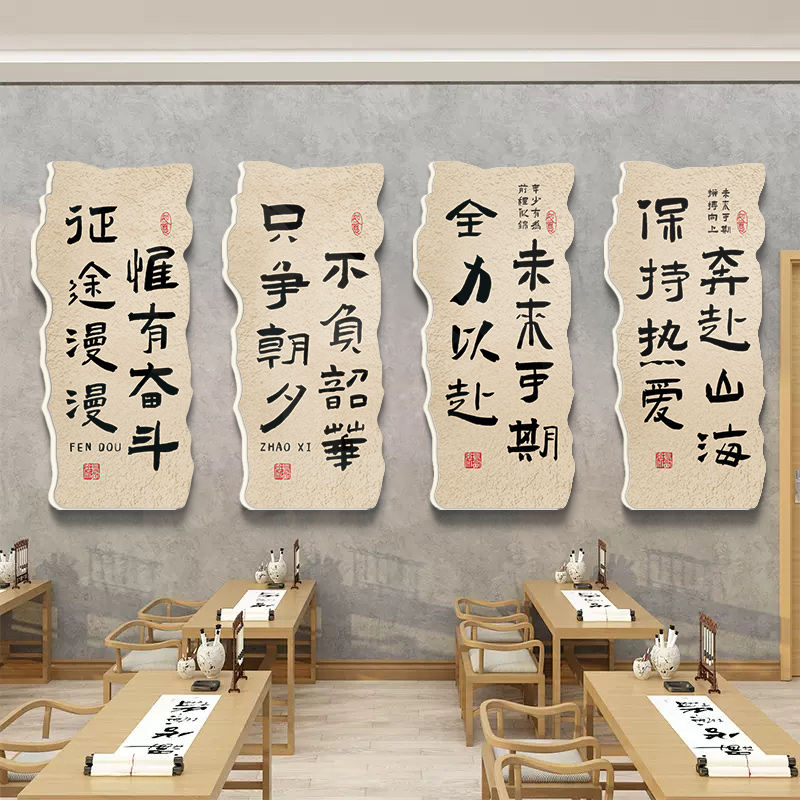 征途漫漫
惟有奋斗
FEN DOU
只争朝夕
不負韶華
ZHAO XI
年少有為
前程似锦
全力以赴
未来可期
未来可期
拼搏向上
保持热爱
奔赴山海